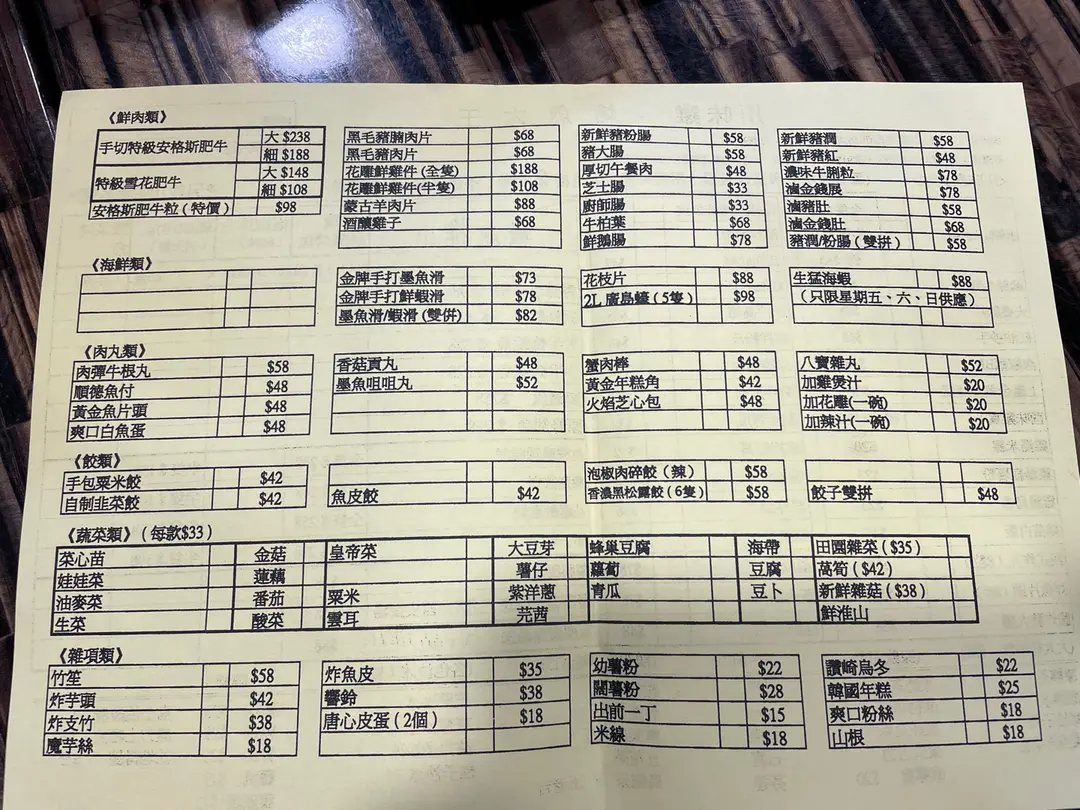 《鮮肉類》
手切特級安格斯肥牛 大 $238
細 $188
特級雪花肥牛 大 $148
細 $108
安格斯肥牛粒 (特價) $98
黑毛豬腩肉片 $68
黑毛豬肉片 $68
花雕鮮雞件 (全隻) $188
花雕鮮雞件 (半隻) $108
蒙古羊肉片 $88
酒釀雞子 $68
新鮮豬粉腸 $58
豬大腸 $58
厚切午餐肉 $48
芝士腸 $33
廚師腸 $33
牛柏葉 $68
鮮鵝腸 $78
新鮮豬潤 $58
新鮮豬紅 $48
濃味牛脷粒 $78
滷金錢展 $78
滷豬肚 $58
滷金錢肚 $68
豬潤/粉腸 (雙拼) $58
《海鮮類》
金牌手打墨魚滑 $73
金牌手打鮮蝦滑 $78
墨魚滑/蝦滑 (雙併) $82
花枝片 $88
2L 廣島蠔 (5隻) $98
生猛海蝦 $88
(只限星期五、六、日供應)
《肉丸類》
肉彈牛根丸 $58
順德魚付 $48
黃金魚片頭 $48
爽口白魚蛋 $48
香菇貢丸 $48
墨魚咀咀丸 $52
蟹肉棒 $48
黃金年糕角 $42
火焰芝心包 $48
八寶雜丸 $52
加雞煲汁 $20
加花雕(一碗) $20
加辣汁(一碗) $20
《餃類》
手包粟米餃 $42
自制韭菜餃 $42
魚皮餃 $42
泡椒肉碎餃 (辣) $58
香濃黑松露餃 (6隻) $58
餃子雙拼 $48
《蔬菜類》 (每款$33)
菜心苗 金菇 皇帝菜 大豆芽 蜂巢豆腐 海帶 田園雜菜 ($35)
娃娃菜 蓮藕 薯仔 蘿蔔 豆腐 萵筍 ($42)
油麥菜 番茄 粟米 紫洋蔥 青瓜 豆卜 新鮮雜菇 ($38)
生菜 酸菜 雲耳 芫茜 鮮淮山
《雜項類》
竹笙 $58
炸芋頭 $42
炸支竹 $38
魔芋絲 $18
炸魚皮 $35
響鈴 $38
唐心皮蛋 (2個) $18
幼薯粉 $22
闊薯粉 $28
出前一丁 $15
米線 $18
讚崎烏冬 $22
韓國年糕 $25
爽口粉絲 $18
山根 $18